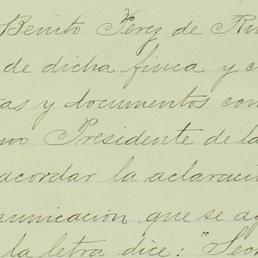 Benito Perez de Ru
de dicha finca y c
as y documentos con
mo Presidente de la
acordar la aclaració
municacion que se a
la letra dice: "Secr